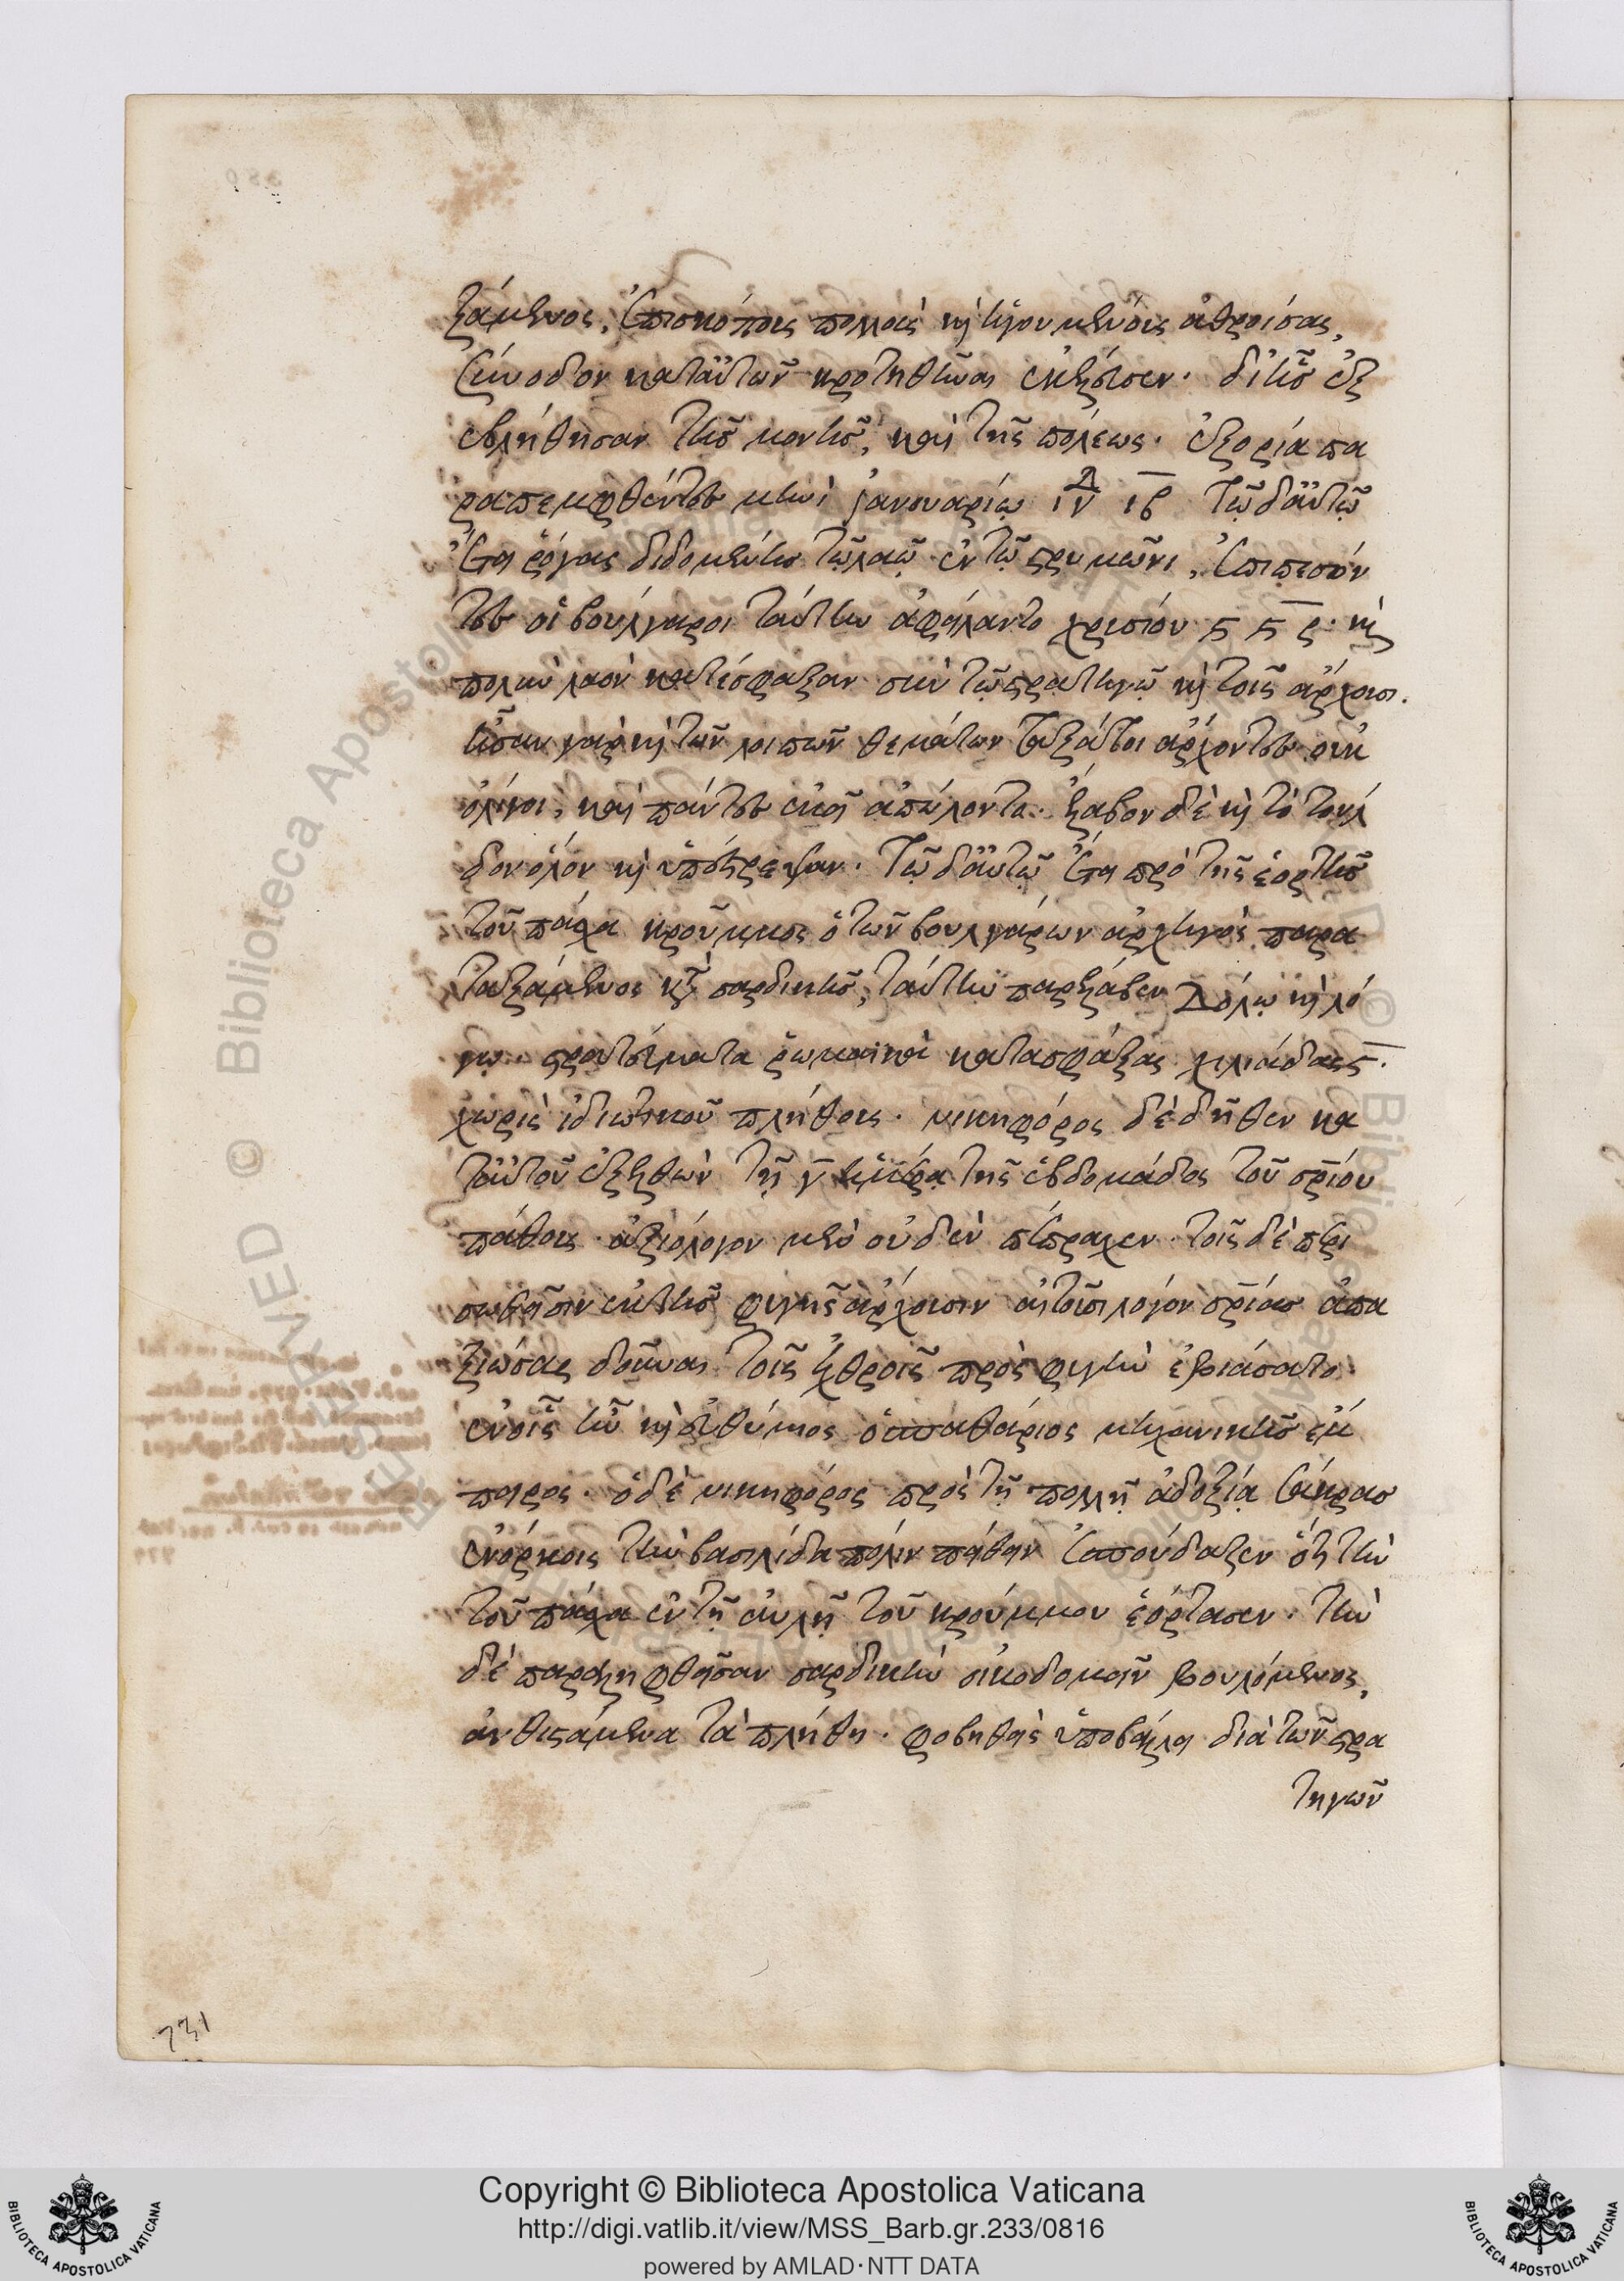 ξάμενος, ἐπισκόπους πολλοὺς καὶ ἡγουμένους ἀθροίσας,
σύνοδον κατ' αὐτῶν κροτηθῆναι ἐκέλευσεν. δι' ἧς ἐξ
εβλήθησαν τῆς μονῆς, καὶ τῆς πόλεως. ἐξορία πα
ραπεμφθέντες μηνὶ ἰανουαρίω ἰν ιβ τῶ δ' αὐτῶ
ἔτει ρόγας διδομένης τῶ λαῶ ἐν τῶ στρυμῶνι, ἐπιπεσόν
τες οἱ βούλγαροι ταύτην ἀφείλαντο χρυσίου
πολὺν λαὸν κατέσφαξαν σὺν τῶ στρατηγῶ καὶ τοῖς ἄρχουσι.
ἦσαν γὰρ καὶ τῶν λοιπῶν θεμάτων ταξάτοι ἄρχοντες οὐκ
ὀλίγοι, καὶ πάντες ἐκεῖ ἀπώλοντο. ἔλαβον δὲ καὶ τὸ τοῦλ
δον ὅλον καὶ ὑπέστρεψαν. τῶ δ' αὐτῶ ἔτει πρὸ τῆς ἑορτῆς
τοῦ πάσχα κροῦμμος ὁ τῶν βουλγάρων ἀρχηγὸς παρα
ταξάμενος κατὰ σαρδικῆς, ταύτην παρέλαβεν δόλω καὶ λό
γω. στρατεύματα ῥωμαϊκὰ κατασφάξας χιλιάδας ϛ.
χωρὶς ἰδιωτικοῦ πλήθους. νικηφόρος δὲ δῆθεν κα
τ' αὐτοῦ ἐξελθὼν τῆ γ ἡμέρα τῆς ἑβδομάδος τοῦ σρίου
πάθους ἀξιόλογον μὲν οὐδὲν πέπραχεν. τοῖς δὲ περι
σωθεῖσιν ἐκ τῆς σφαγῆς ἄρχουσιν αἰτοῦσι λόγον σρίας ἀπα
ξιώσας δοῦναι τοῖς ἐχθροῖς πρὸς φυγὴν ἐβιάσατο
ἐν οἷς ἦν καὶ εὐθύμιος ὁ σπαθάριος μηχανικῆς ἔμ
πειρος. ὁ δὲ νικηφόρος πρὸς τῆ πολλῆ ἀδοξία σάκρας
ἐνόρκοις τὴν βασιλίδα πόλιν πείθειν ἐσπούδαζεν ὅτι τὴν
τοῦ πάσχα ἐν τῆ αὐλῆ τοῦ κρούμμου ἑόρτασεν. τὴν
δὲ παραληφθεῖσαν σαρδικὴν οἰκοδομεῖν βουλόμενος,
ἀνθιστάμενα τὰ πλήθη. φοβηθεὶς ὑποβάλλει διὰ τῶν στρα
τηγῶν
731
Copyright © Biblioteca Apostolica Vaticana
http://digi.vatlib.it/view/MSS_Barb.gr.233/0816
powered by AMLAD·NTT DATA
BIBLIOTECA APOSTOLICA VATICANA
BIBLIOTECA APOSTOLICA VATICANA